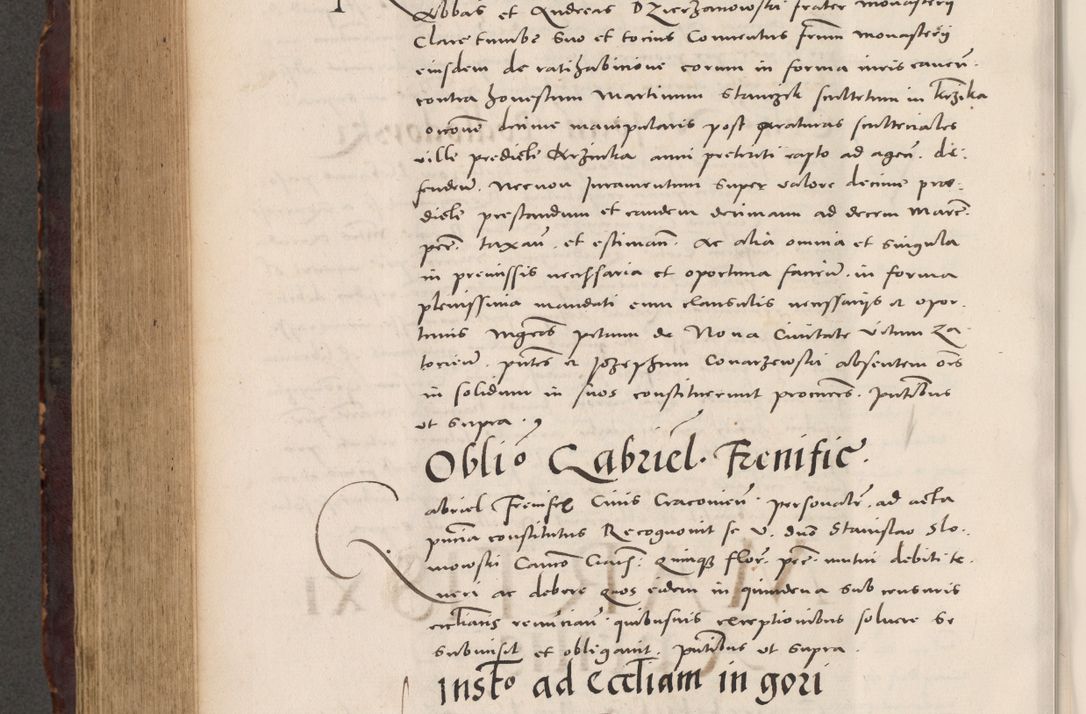 Abbas et Andreas Dzierzanowski frater monasterij
Claretumbe suo et tocius Conuentus frum monasterij
eiusdem de ratihabicione eorum in forma iuris cauen.
contra honestum Martinum Stanczik scultetum in krzika
decime manipularis post araturas scultetiales
ville predicte Krzinka anni preteriti rapto ad agen. de:
fenden. necnon Juramentum super valore decime pre:
dicte prestandum et eandem decimam ad decem Marc.
pec. taxan. et estiman. ac alia omnia et singula
in premissis necessaria et oportuna facien. in forma
plenissima mandati cum clausulis necessarijs et opor.
tunis de Noua Ciuitate Za
torien. pntes et Jozephum Conarzewski absentem oes
in solidum in suos constituerunt procures. pntibus
ut supra.
Oblio Gabriel. Frenific.
Gabriel Frenific Ciuis Cracouien. personalr. ad acta
pncia constitutus Recognouit se v. dno Stanislao Slo.
mowski Canco Quinque flor. pec. mutui debiti te.
neri ac debere quos eidem in quindena sub censuris
ecclianis renuncian. quibusuis exceptionibus soluere se
submisit et obligauit. pntibus ut supra.
Insto ad Eccliam in gori